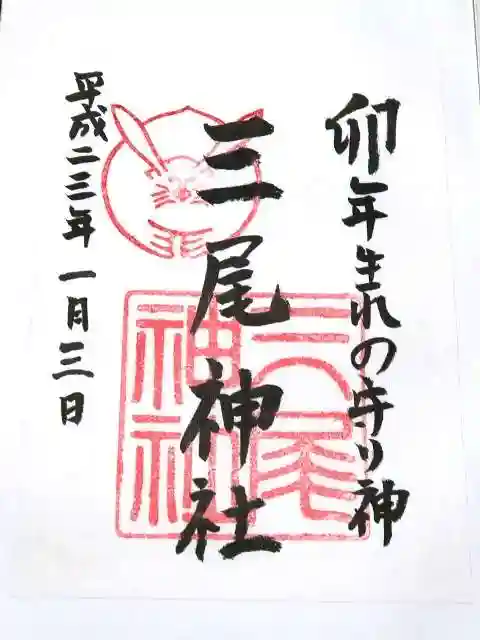 卯年生れの守り神
三尾神社
平成二三年一月三日
三尾
神社